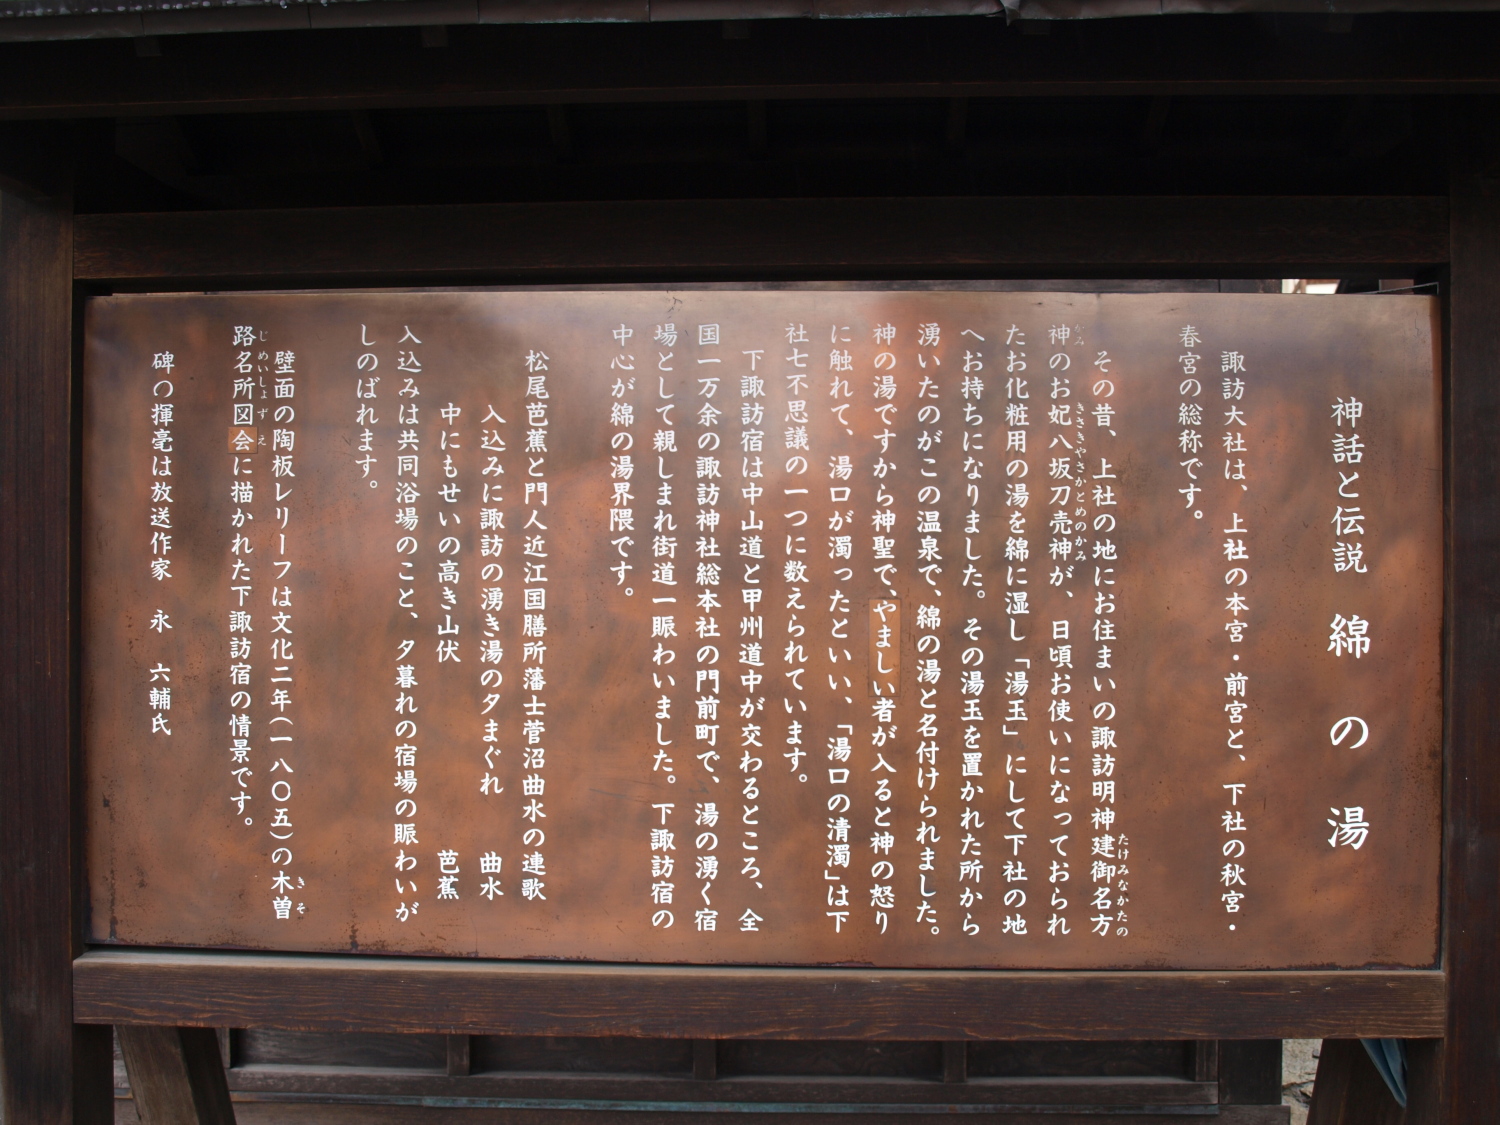 神話と伝説　綿の湯
諏訪大社は、上社の本宮・前宮と、下社の秋宮・
春宮の総称です。
その昔、上社の地にお住まいの諏訪明神建御名方
たけみなかたの
神のお妃八坂刀売神が、日頃お使いになっておられ
がみ　きさきやさかとめのかみ
たお化粧用の湯を綿に湿し「湯玉」にして下社の地
へお持ちになりました。その湯玉を置かれた所から
湧いたのがこの温泉で、綿の湯と名付けられました。
神の湯ですから神聖で、やましい者が入ると神の怒り
に触れて、湯口が濁ったといい、「湯口の清濁」は下
社七不思議の一つに数えられています。
下諏訪宿は中山道と甲州道中が交わるところ、全
国一万余の諏訪神社総本社の門前町で、湯の湧く宿
場として親しまれ街道一賑わいました。下諏訪宿の
中心が綿の湯界隈です。
松尾芭蕉と門人近江国膳所藩士菅沼曲水の連歌
入込みに諏訪の湧き湯の夕まぐれ　曲水
中にもせいの高き山伏　芭蕉
入込みは共同浴場のこと、夕暮れの宿場の賑わいが
しのばれます。
壁面の陶板レリーフは文化二年(一八〇五)の木曽
きそ
路名所図会に描かれた下諏訪宿の情景です。
じめいしょずえ
碑の揮毫は放送作家　永　六輔氏